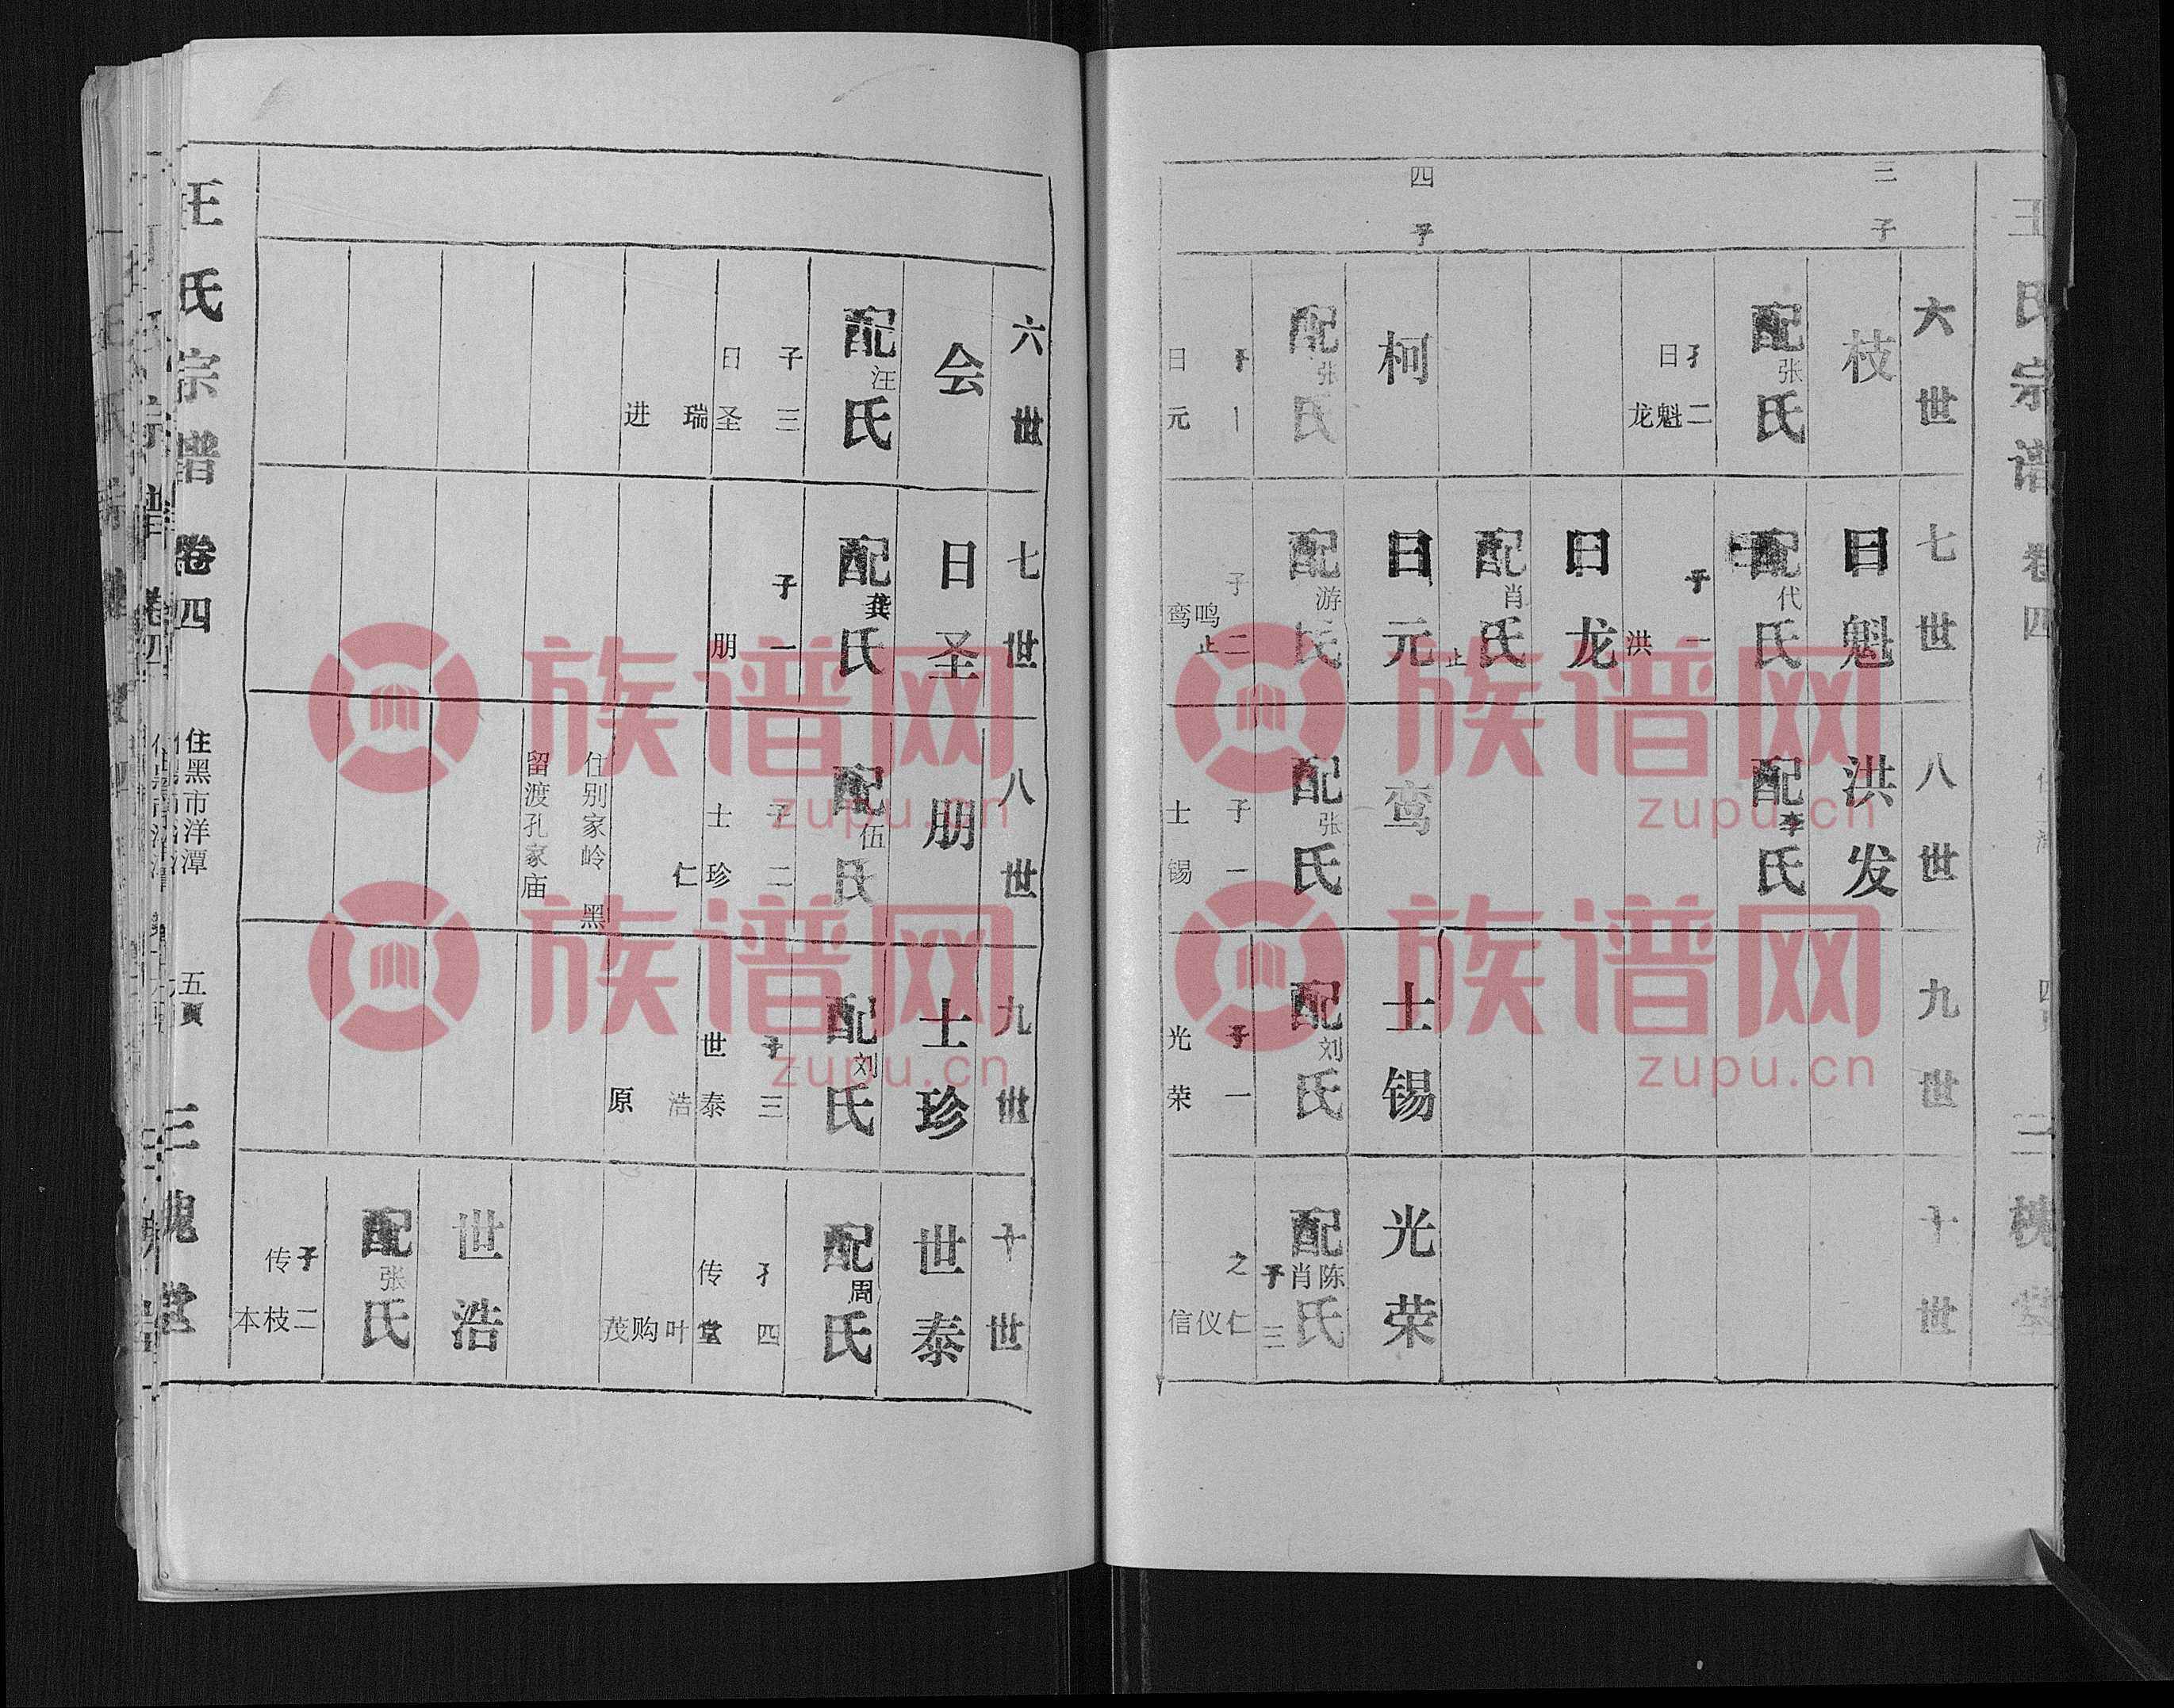 王氏宗谱 卷四 三槐堂
三子
四子
六世
枝
配张氏
子二
日魁
龙
柯
配张氏
子一
日元
七世
日魁
配代氏
子一
洪
日龙
配肖氏
止
日元
配游氏
子二
鸣止
鸾
八世
洪发
配李氏
鸾
配张氏
子一
士锡
九世
士锡
配刘氏
子一
光荣
十世
光荣
配陈肖氏
子三
之仁
仪
信
六世
会
配汪氏
子三
日圣
瑞
进
七世
日圣
配龚氏
子一
朋
八世
朋
配伍氏
子二
士珍
仁
住别家岭 黑
留渡孔家庙
九世
士珍
配刘氏
子三
世泰
浩
原
十世
世泰
配周氏
子四
传堂
叶
购
茂
世浩
配张氏
子二
传枝
本
王氏宗谱 卷四 住黑市洋潭 五页 三槐堂
族谱网
zupu.cn
族谱网
zupu.cn
族谱网
zupu.cn
族谱网
zupu.cn